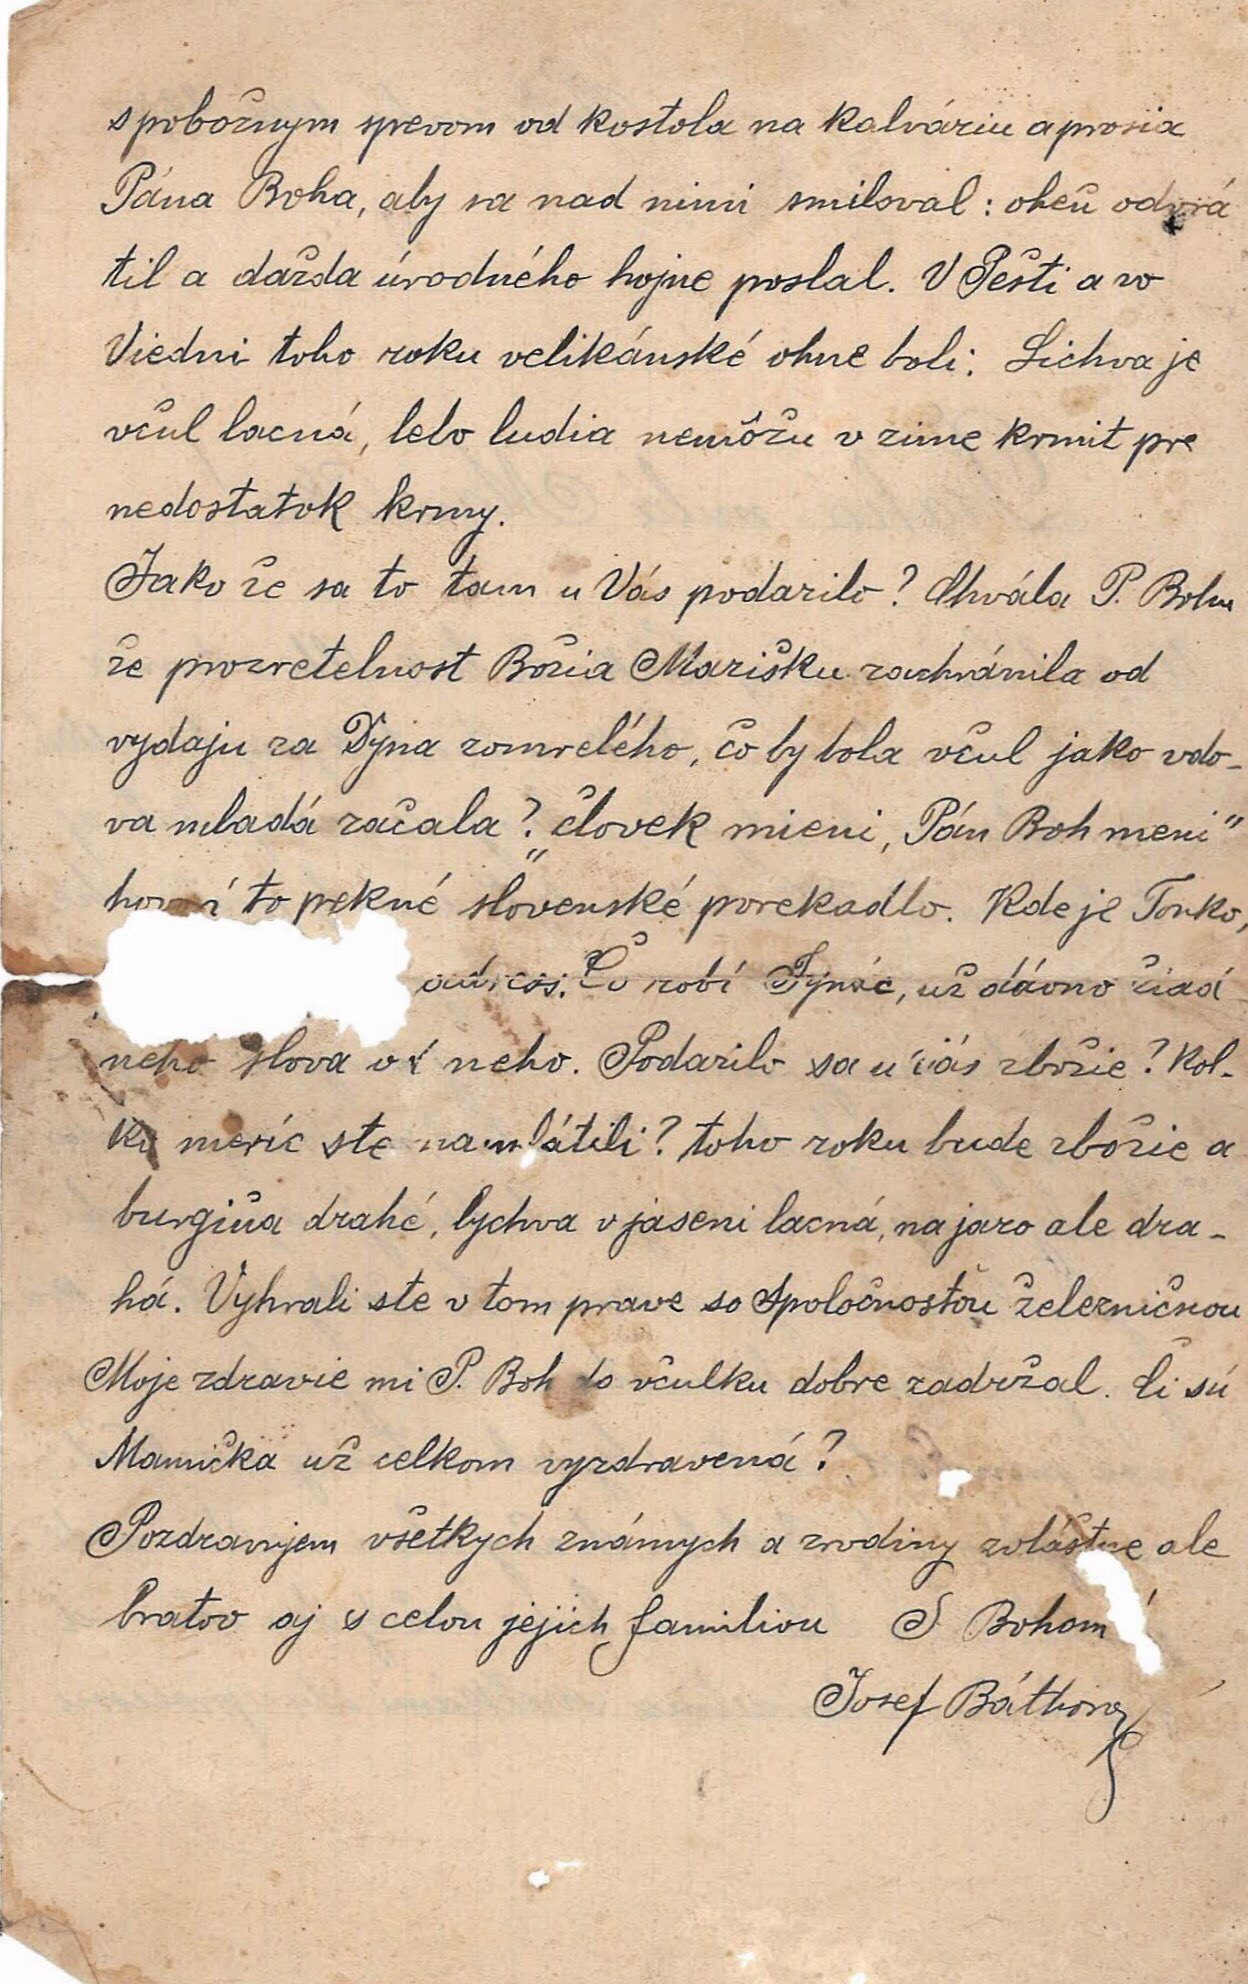 s pobožnym spevom od kostola na kalváriu a prosia
Pána Boha, aby sa nad nimi smiloval: oheň odvrá
til a dažďa úrodného hojne poslal. V Pešti a vo
Viedni toho roku velikánské ohne boli. Lichva je
včul lacná, lebo ludia nemôžu v zime krmit pre
nedostatok krmy.
Jako že sa to tam u Vás podarilo? Chvála P. Bohu
že prozretelnost Božia Marišku zachránila od
vydaju za Dyna zomrelého, čo by bola včul jako vdo-
va mladá začala? „človek mieni, Pán Boh meni"
hovorí to pekné slovenské porekadlo. Kde je Tonko,
Čo robí už dávno žiad
neho slova od neho. Podarilo sa u vás zbožie? Kol-
ko meríc ste namlátili? toho roku bude zbožie a
burgiňa drahé, lychva v jaseni lacná, na jaro ale dra-
há. Vyhrali ste v tom prave so Spoločnosťou železničnou
Moje zdravie mi P. Boh do včulku dobre zadržal. Či sú
Mamička už celkom vyzdravená?
Pozdravujem všetkych známych a z rodiny zvláštne ale
bratov aj s celou jejich familiou S Bohom
Josef Báthory